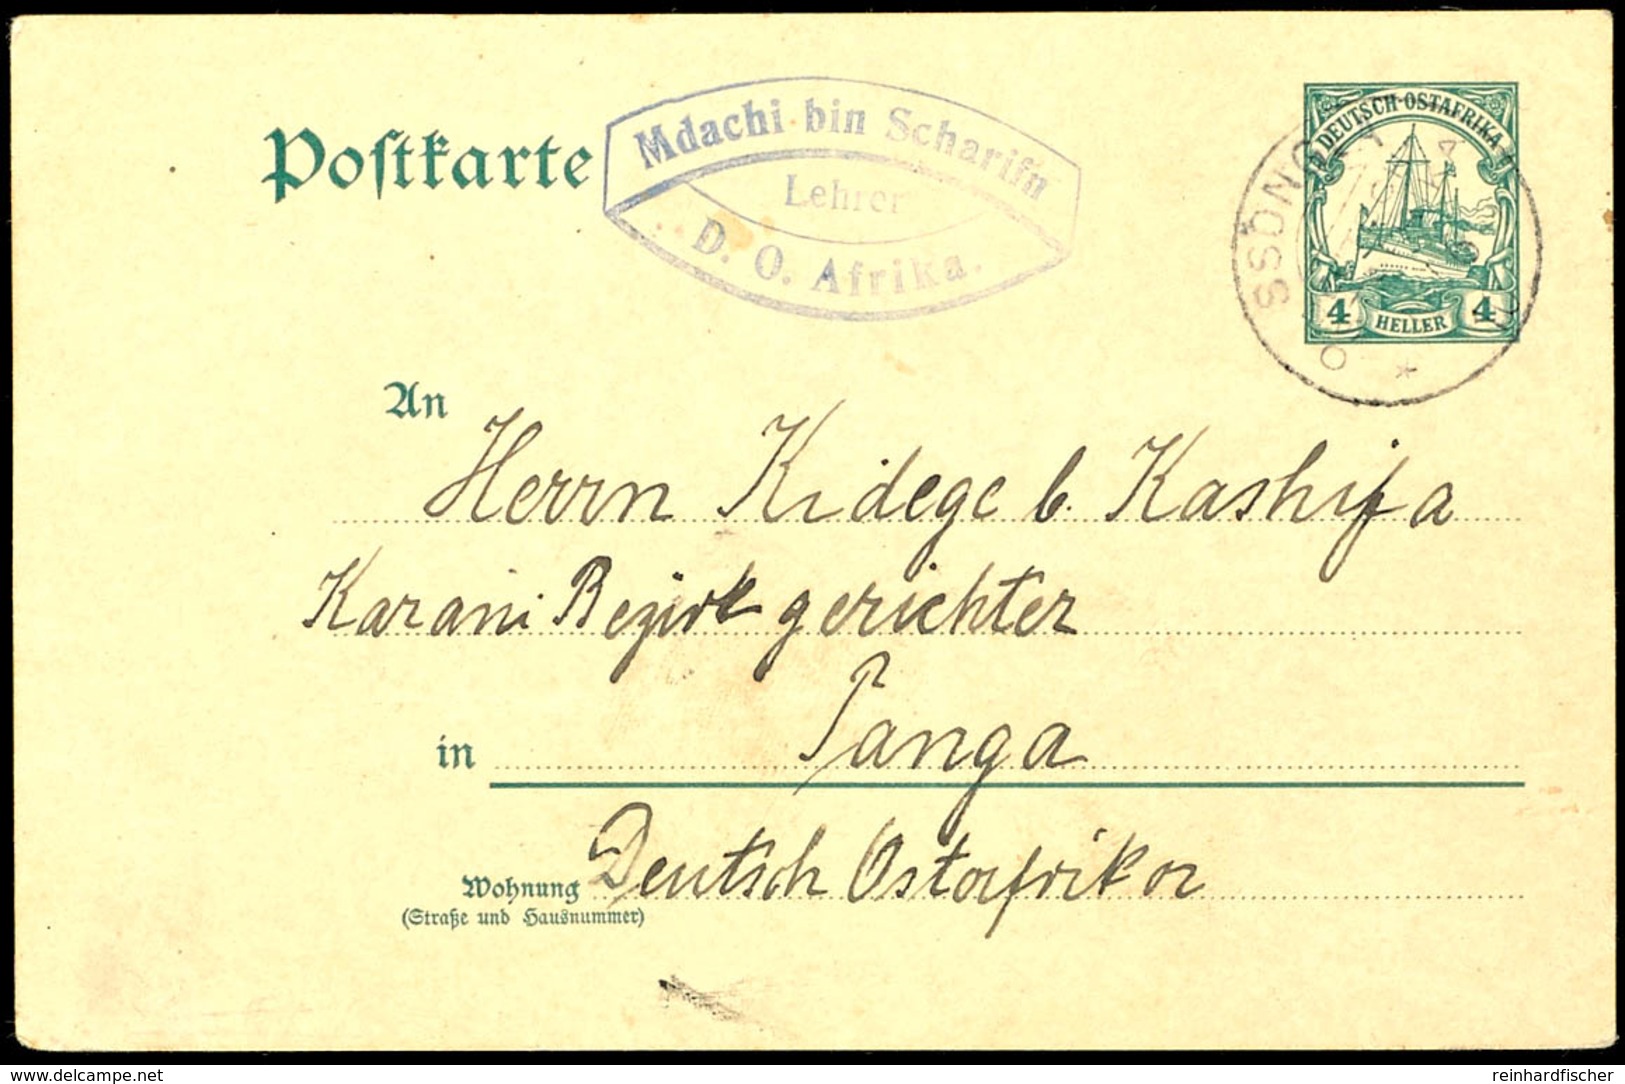 Postkarte
Mdachi bin Scharifn
Lehrer
D. O. Afrika.
DEUTSCH-OSTAFRIKA
4 HELLER 4
SSONG
An
Herrn Kidege b. Kashifa
Karani Bezirkgerichter
in Tanga
Wohnung Deutsch Ostafrika
(Straße und Hausnummer)
www.delcampe.net
reinhardfischer